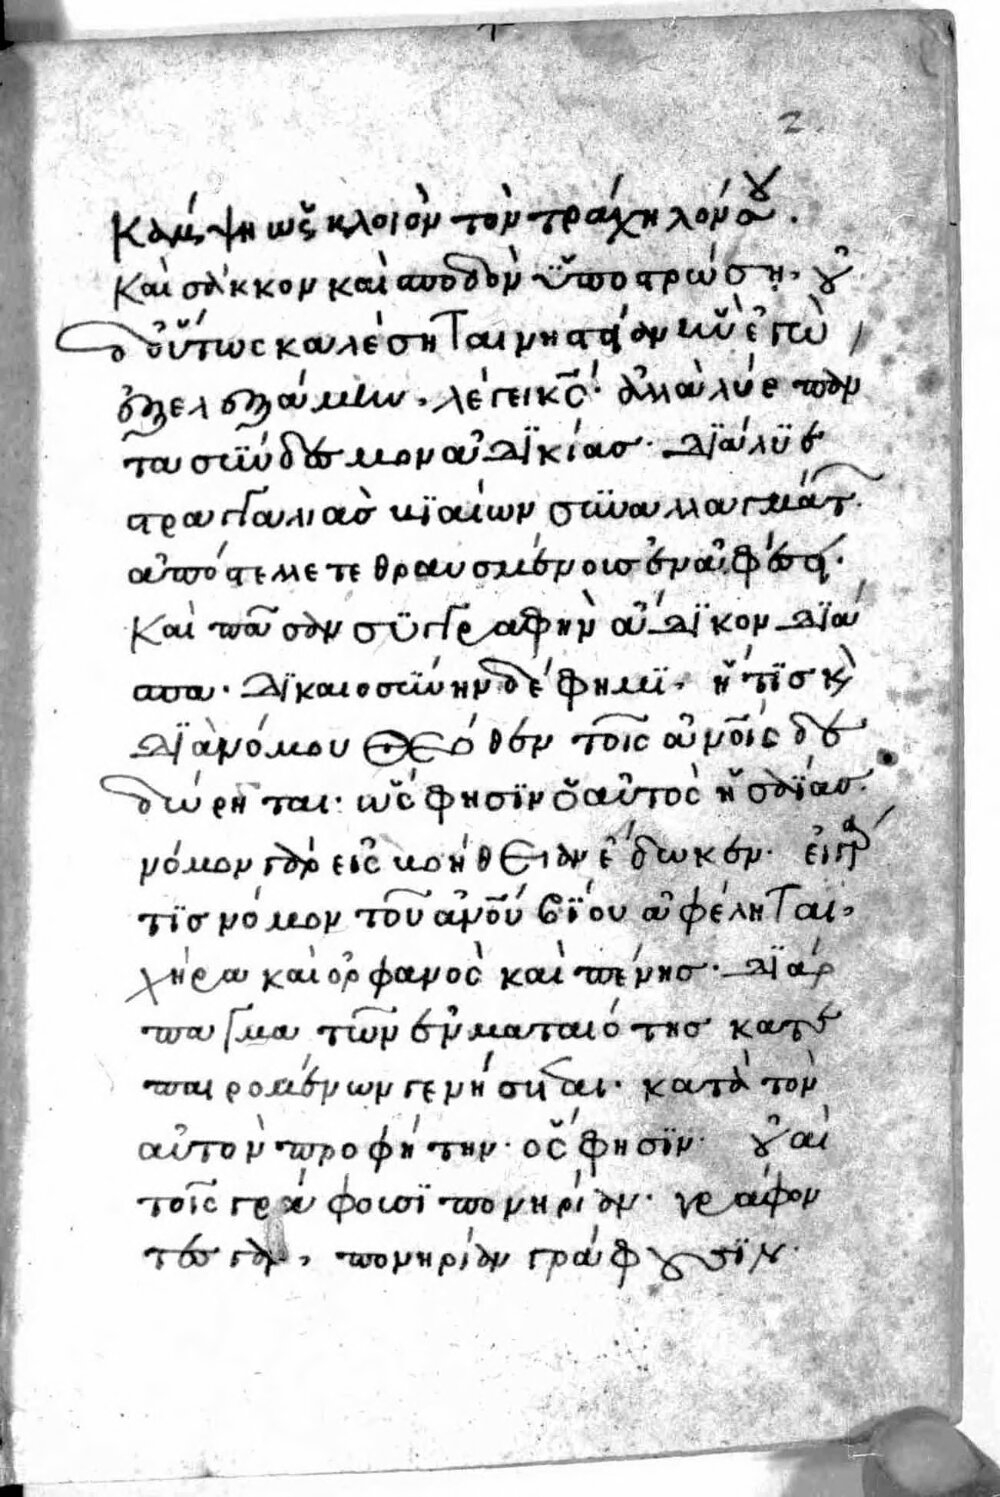 2
Κάμψης ὡς κλοιὸν τὸν τράχηλόν σου.
Καὶ σάκκον καὶ σποδὸν ὑποστρώσῃ. οὐ
δ' οὕτως καλέσηται νηστείαν
ἐξελεξάμην. λέγει κς̄· ἀλλὰ λύε πάν
τα σύνδεσμον ἀδικίας· διάλυε
στραγγαλιὰς βιαίων συναλλαγμάτ.
ἀπόστελλε τεθραυσμένους ἐν ἀφέσει·
Καὶ πᾶσαν συγγραφὴν ἄδικον διά
σπα. δικαιοσύνην δέ φημι. ἥτις κ
διὰ νόμου θεόθεν τοῖς ἀνοις δε
δώρηται· ὥς φησὶν ὁ αὐτὸς ἡσαΐας.
νόμον γὰρ εἰς βοήθειαν ἔδωκεν·
τῖς νόμον τοῦ ἀνοῦ βίου ἀφέληται,
χήρα καὶ ὀρφανὸς καὶ πένης· διάρ
πασμα τῶν ἐν ματαιότητι κατε
παιρομένων γενήσεται· κατὰ τὸν
αὐτὸν προφήτην· ὅς φησὶν· οὐαὶ
τοῖς γράφουσι πονηρίαν· γράφον
τες γὰρ, πονηρίαν γράφουσιν·